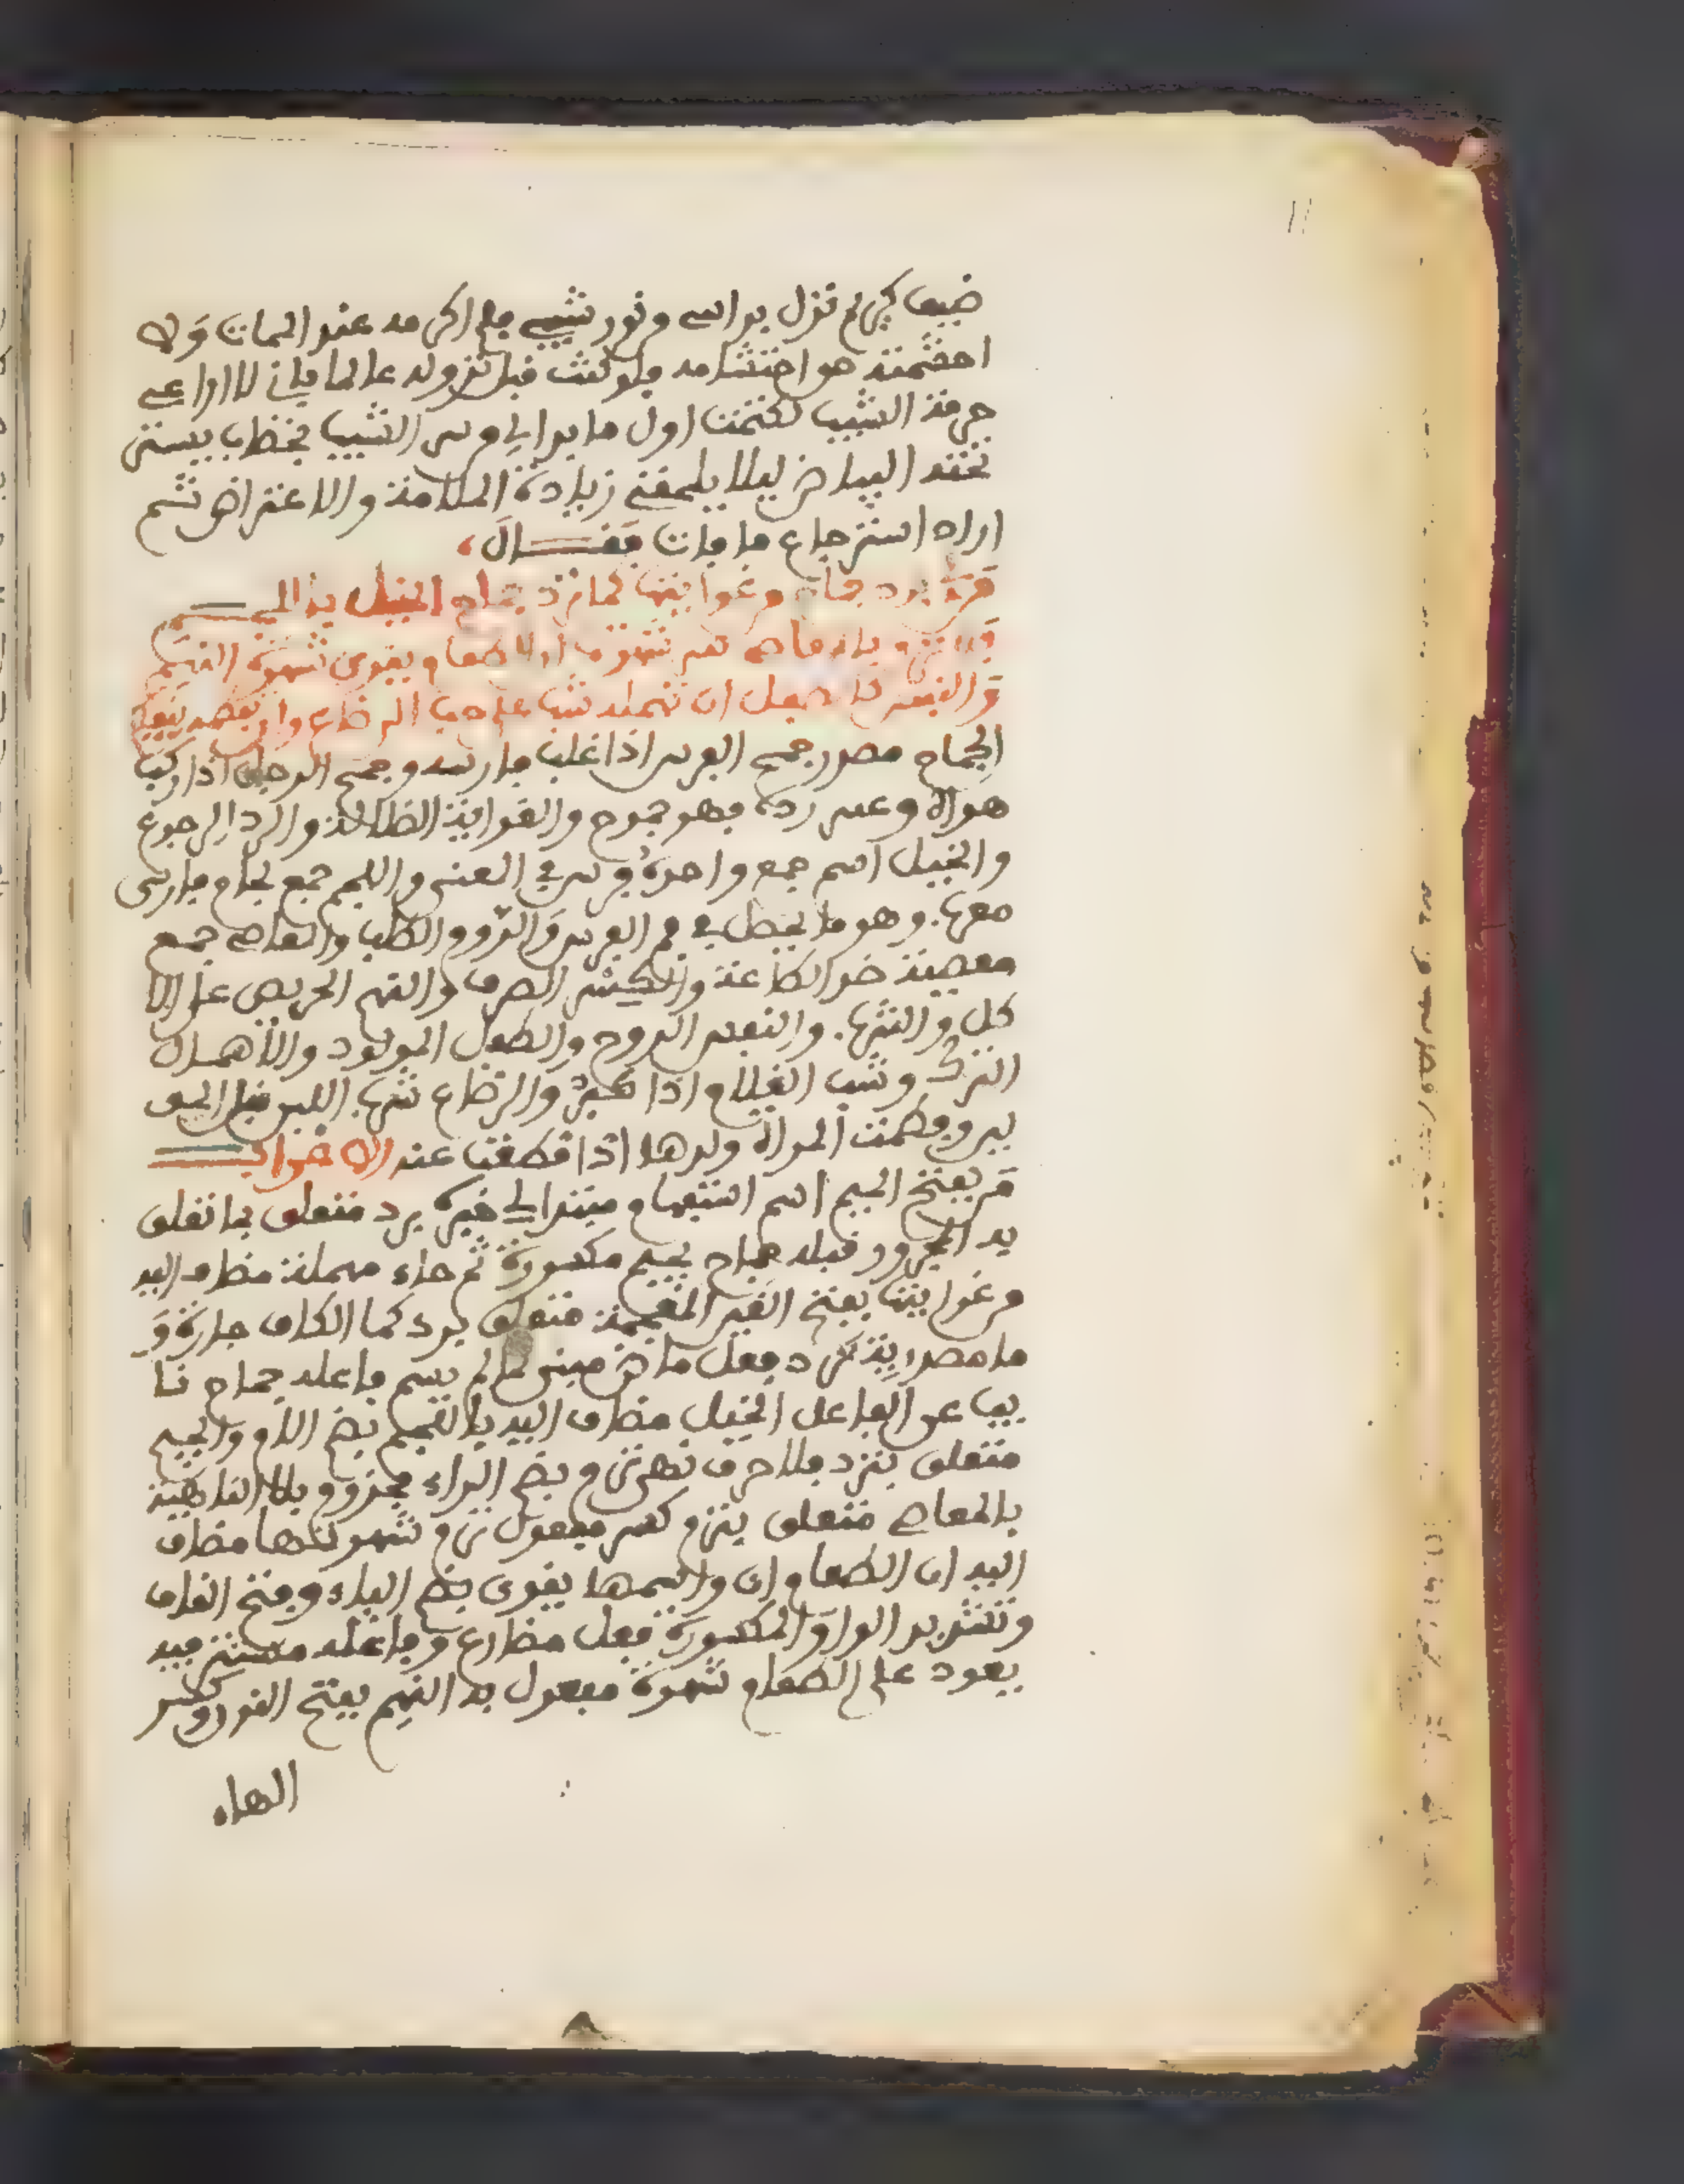 11
ضيف كريم نزل براسي ونور شيبي فلم اكرمه عند الممات ولا
احتشمته حق احتشامه فلو كنت قبل نزوله عالما باني لا اراعي
حرمة الشيب لكتمت اول ما بدا لي من الشيب بخظاب يستر
تحته البياض ليلا يلحقني زيادة الملامة والاعتراض ثم
اراد استرجاع ما فات فقال
من برد جماح من غوايتها كما ترد جماح الخيل باللجم
فلا ترم بالمعاصي كسر شهوتها ان الطعام يقوي شهوة النهم
والنفس كالطفل ان تهمله شب على حب الرضاع وان تفطمه ينفطم
الجماح مصدر جمح الفرس اذا غلب فارسه وجمح الرجل اذا ركب
هواه وعسر رده فهو جموح والغواية الظلالة والرد الرجوع
والخيل اسم جمع واحده فرس في المعنى واللجم جمع لجام فارسي
معرب وهو ما يجعل في فم الفرس والروم الطلب والمعاصي جمع
معصية ضد الطاعة والكسر الصرف والنهم الحريص على الا
كل والشرب. والنفس الروح والطفل المولود والاهمال
الترك وشب الغلام اذا كبر والرضاع شرب اللبن قبل الحو
لين وفطمت المراة ولدها اذا قطعت عنه الاعراب
من بفتح الميم اسم استفهام مبتدا لي خبره برد متعلق بما تعلق
به المجرور قبله جماح بجيم مكسورة ثم حاء مهملة مظاف اليه
من غوايتها بفتح الغين المعجمة متعلق برد كما الكاف جارة و
ما مصدرية ترد فعل ماض مبني لما لم يسم فاعله جماح نا
يب عن الفاعل الخيل مظاف اليه باللجم بضم اللام والجيم
متعلق بترد فلا حرف نهي ترم بضم الراء مجزوم بلا الناهية
بالمعاصي متعلق بترم كسر مفعول ترم شهوتها مظاف
اليه ان الطعام ان واسمها يقوي بضم الياء وفتح القاف
وتشديد الواو المكسورة فعل مظارع وفاعله مستتر فيه
يعود على الطعام شهوة مفعول به النهم بفتح النون وكسر
الهاء